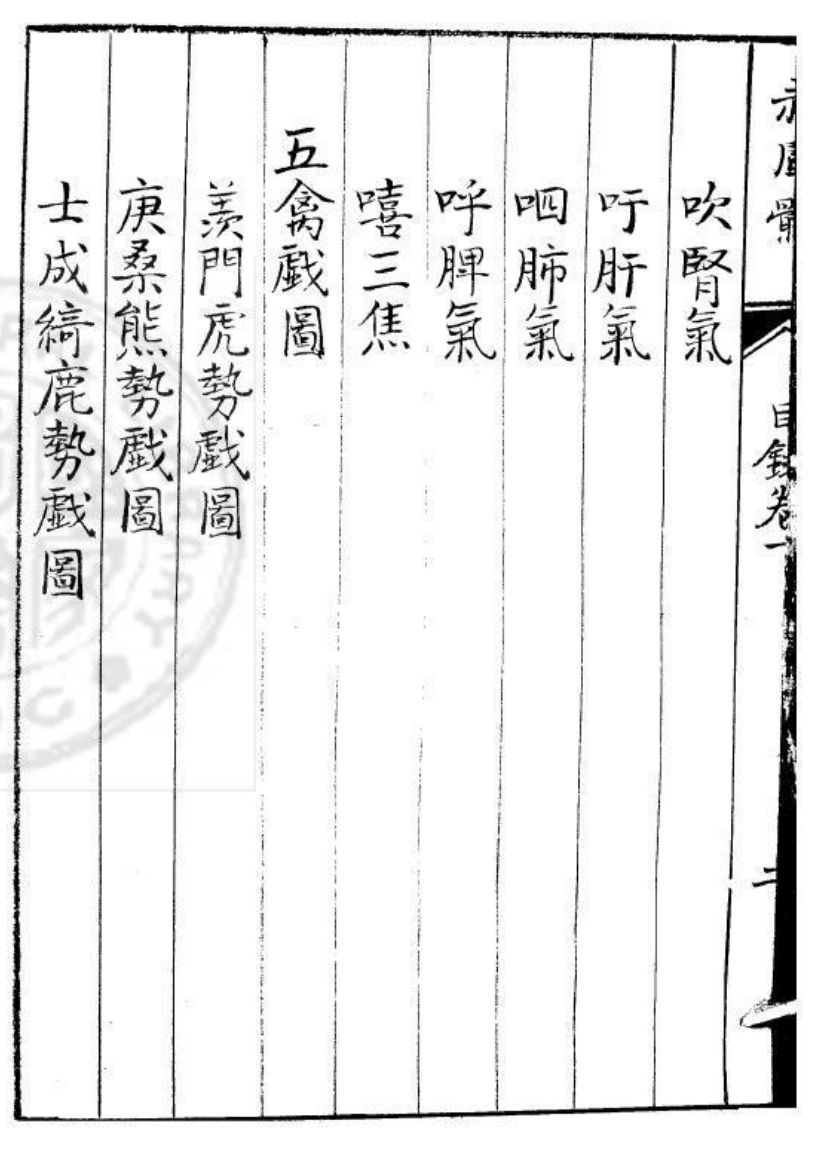 吹腎氣
吁肝氣
呬肺氣
呼脾氣
嘻三焦
五禽戲圖
羨門虎勢戲圖
庚桑熊勢戲圖
士成綺鹿勢戲圖
目錄卷一
二